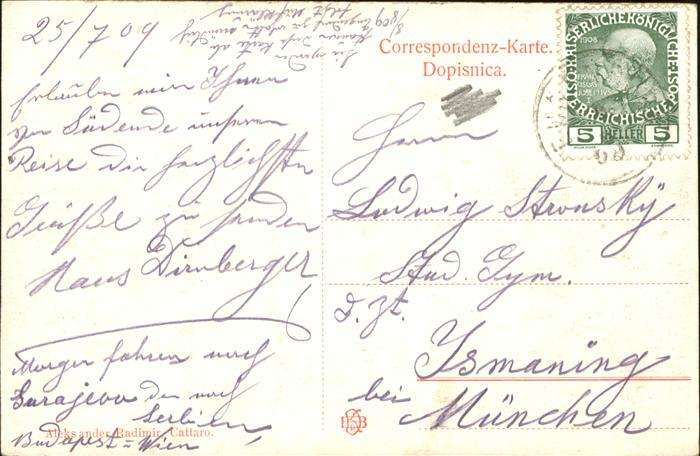 25/7 09
Erlauben mir Ihnen
vom Südende unserer
Reise die herzlichsten
Grüße zu senden
Hans Dirnberger
Morgen fahren nach
Sarajevo dann nach
Serbien,
Budapest = Wien
Aleksander Radimir, Cattaro.
Correspondenz-Karte.
Dopisnica.
1908
KAISERLICHE KÖNIGLICHE
ÖSTERREICHISCHE POST
5 HELLER 5
Herrn
Ludwig Stronsky
Stud. Gym.
z. Zt.
Ismaning
bei
München